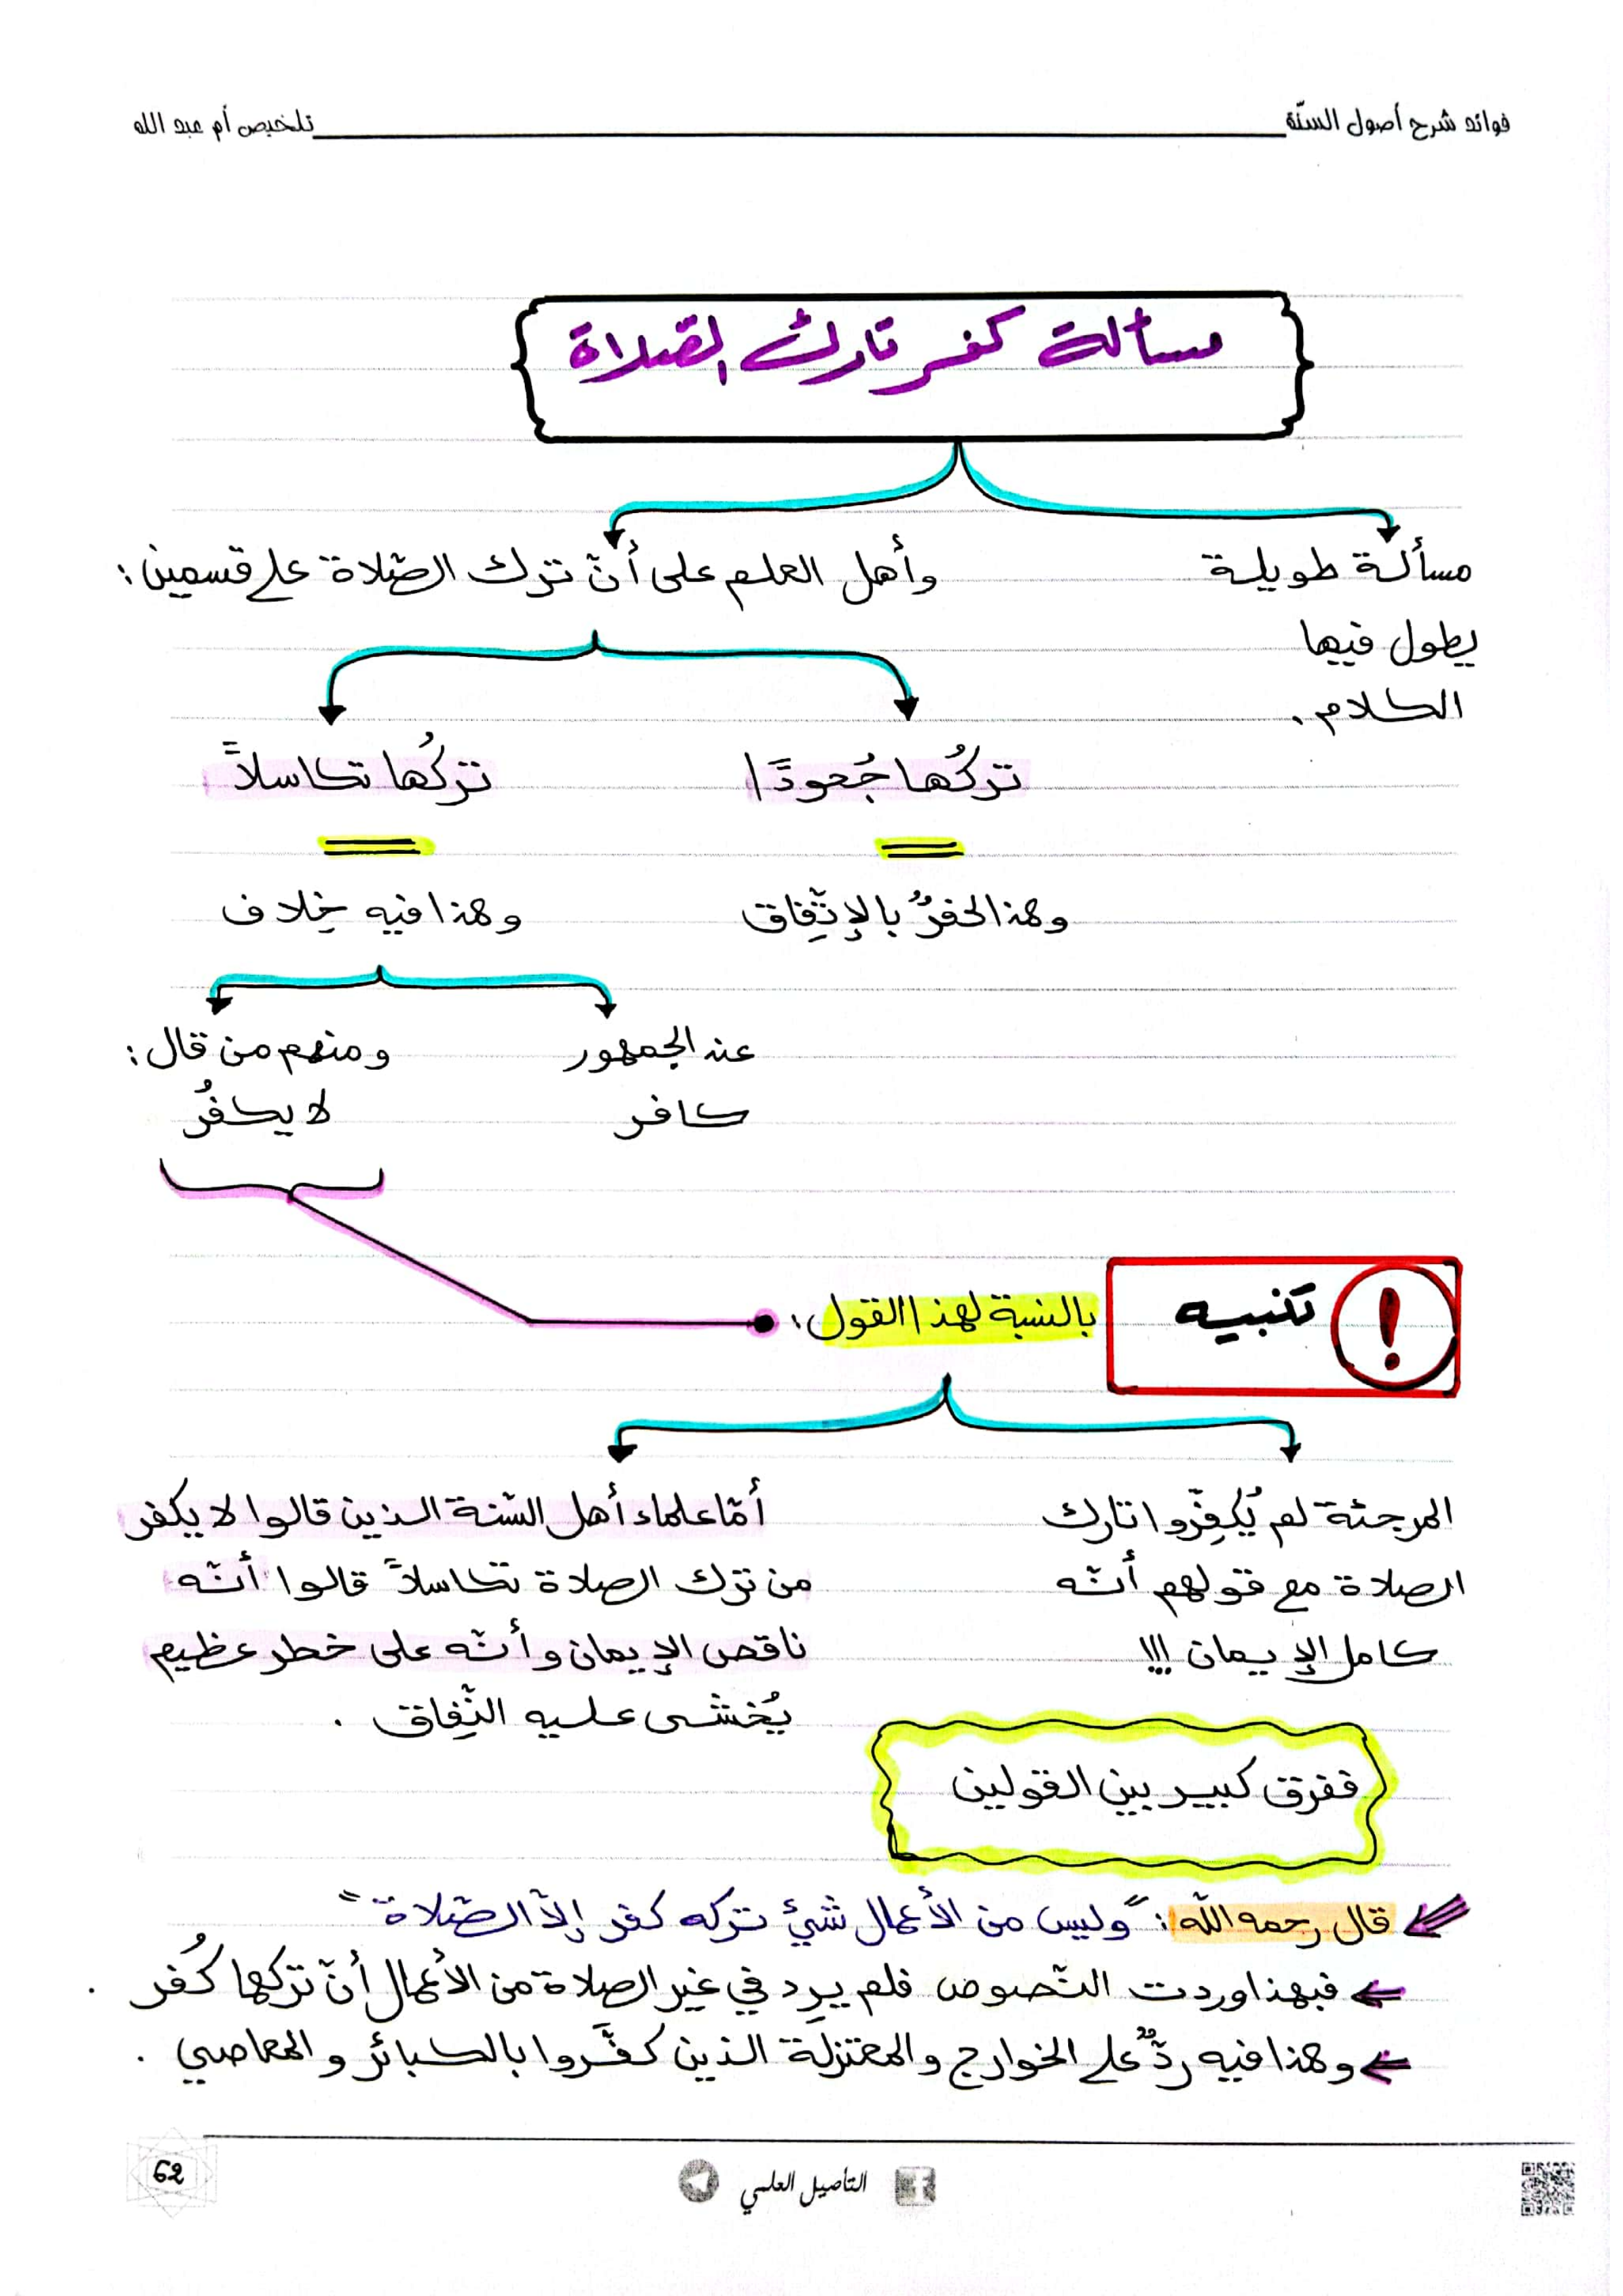 فوائد شرح أصول السنّة
تلخيص أم عبد الله
مسألة كفر تارك الصلاة
مسألة طويلة
يطول فيها
الكلام.
وأهل العلم على أنّ ترك الصّلاة على قسمين:
تركُها جُحودًا
وهذا كفرٌ بالإتّفاق
تركُها تكاسلاً
وهذا فيه خِلاف
عند الجمهور
كافر
ومنهم من قال:
لا يكفرُ
تنبيه
بالنسبة لهذا القول:
المرجئة لم يُكفِّروا تارك
الصلاة مع قولهم أنّه
كامل الإيمان !!!
أمّا علماء أهل السّنة الذين قالوا لا يكفر
من ترك الصلاة تكاسلاً قالوا أنّه
ناقص الإيمان وأنّه على خطر عظيم
يُخشى عليه النّفاق .
ففرق كبير بين القولين
قال رحمه الله: "وليس من الأعمال شيئ تركه كفر إلاّ الصّلاة"
فبهذا وردت النّصوص فلم يرِد في غير الصلاة من الأعمال أنّ تركها كُفر .
وهذا فيه ردٌّ على الخوارج والمعتزلة الذين كفَّروا بالكبائر والمعاصي .
التأصيل العلمي
62